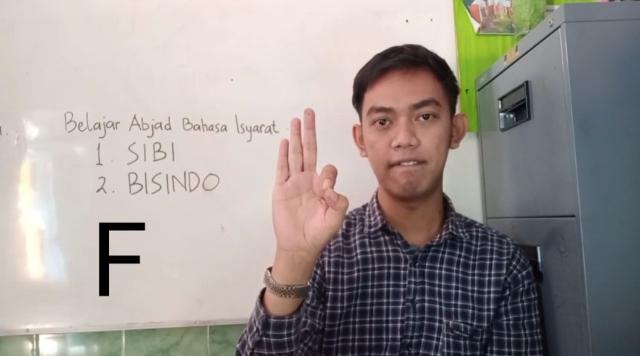 Belajar Abjad Bahasa Isyarat.
1. SIBI
2. BISINDO
F